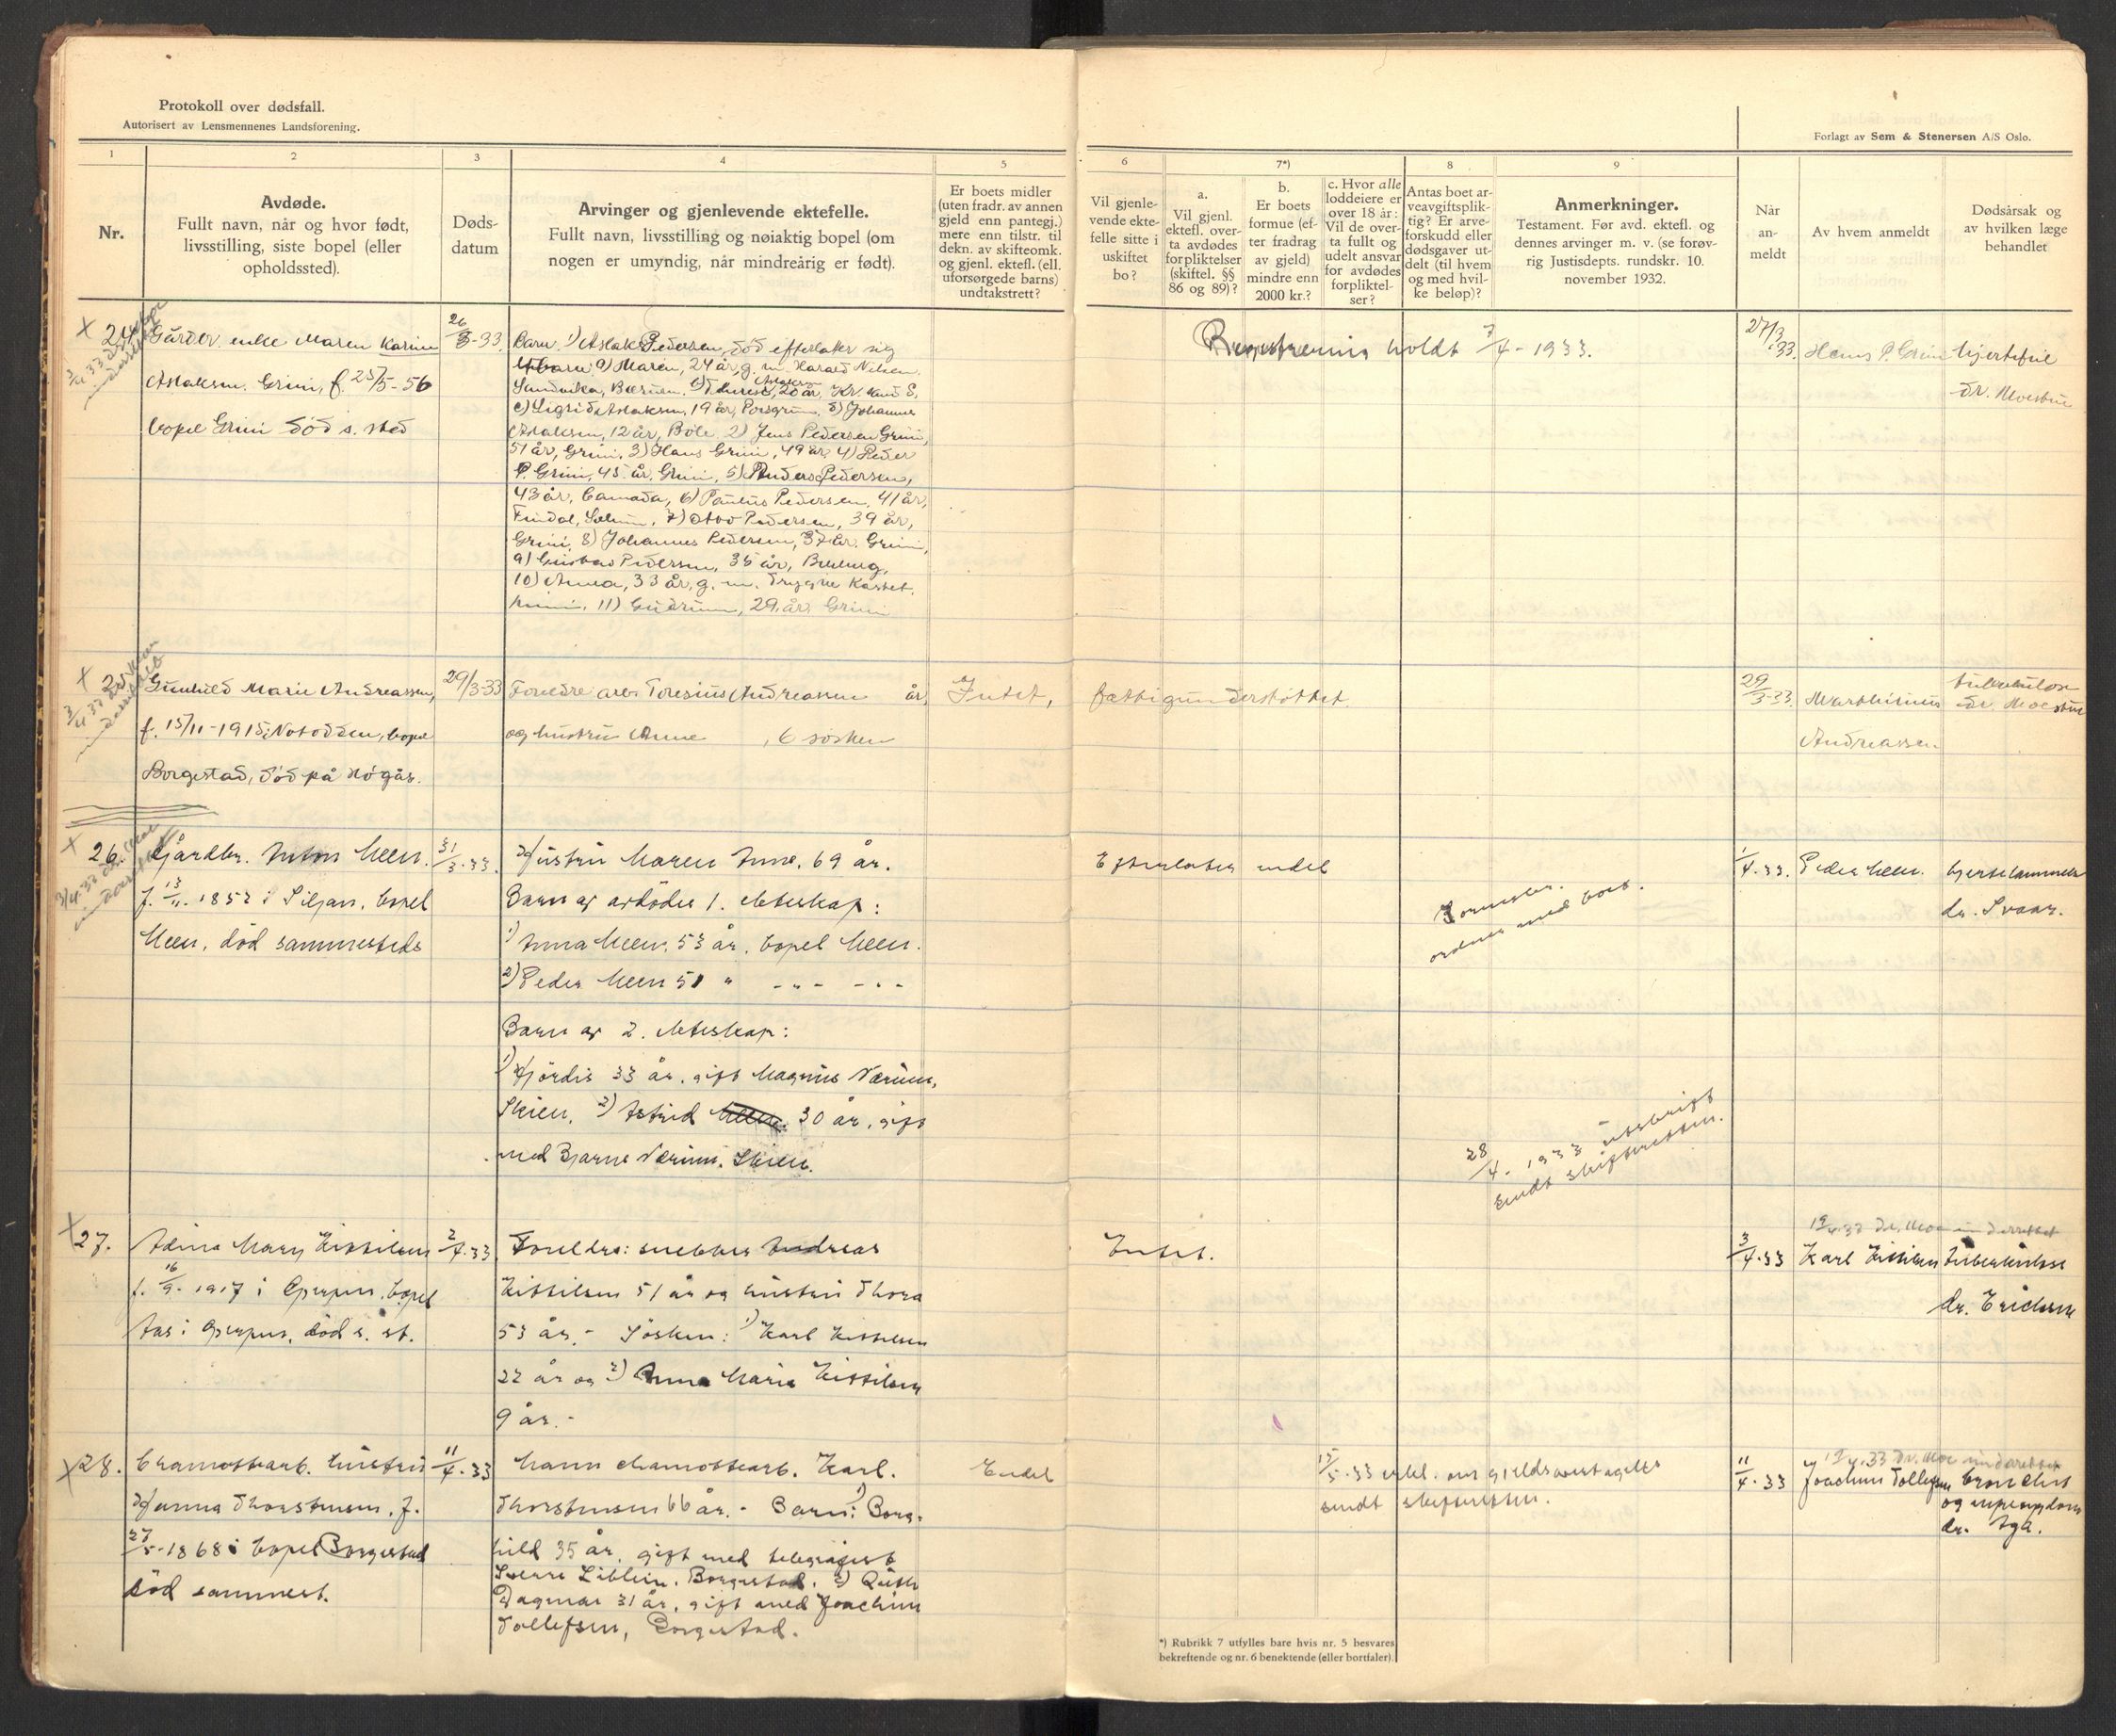 Protokoll over dødsfall.
Autorisert av Lensmennenes Landsforening.
Forlagt av Sem & Stenersen A/S Oslo.
1
2
3
4
5
6
7*)
8
9
Nr.
Avdøde.
Fullt navn, når og hvor født,
livsstilling, siste bopel (eller
opholdssted).
Døds-
datum
Arvinger og gjenlevende ektefelle.
Fullt navn, livsstilling og nøiaktig bopel (om
nogen er umyndig, når mindreårig er født).
Er boets midler
(uten fradr. av annen
gjeld enn pantegj.)
mere enn tilstr. til
dekn. av skifteomk.
og gjenl. ektefl. (ell.
uforsørgede barns)
undtakstrett?
Vil gjenle-
vende ekte-
felle sitte i
uskiftet
bo?
a.
Vil gjenl.
ektefl. over-
ta avdødes
forpliktelser
(skiftel. §§
86 og 89)?
b.
Er boets
formue (ef-
ter fradrag
av gjeld)
mindre enn
2000 kr.?
c. Hvor alle
loddeiere er
over 18 år:
Vil de over-
ta fullt og
udelt ansvar
for avdødes
forpliktel-
ser?
Antas boet ar-
veavgiftsplik-
tig? Er arve-
forskudd eller
dødsgaver ut-
delt (til hvem
og med hvil-
ke beløp)?
Anmerkninger.
Testament. Før avd. ektefl. og
dennes arvinger m. v. (se forøv-
rig Justisdepts. rundskr. 10.
november 1932.
Når
an-
meldt
Av hvem anmeldt
Dødsårsak og
av hvilken læge
behandlet
x 24
Gårdbr. enke Maren Karine
Aslaksen. Grini, f. 25/5-56
bopel Grini død s. sted
26/3-33
Barn. 1) Aslak Pedersen, død efterlater sig
barn a) Maren, 24 år, g. m. Harald Nilsen,
Sandvika, Bærum.
c) Sigrid Aslaksen, 19 år, Porsgrunn, d) Johannes
Aslaksen, 12 år, Bøle 2) Jens Pedersen Grini,
51 år, Grini, 3) Hans Grini, 49 år, 4) Peder
P. Grini, 45 år, Grini, 5) Anders Pedersen,
43 år, Canada, 6) Paulus Pedersen, 41 år,
Solum, 7) Otto Pedersen, 39 år,
Grini, 8) Johannes Pedersen, 37 år. Grini,
9) Gustav Pedersen, 35 år,
10) Anna, 33 år, g. m. Trygve
11) Gudrun, 29 år, Grini
Registrering holdt 7/4 - 1933.
27/3 33.
Hans P. Grini
hjertefeil
dr. Moestue
x 25
Gunhild Marie Andreassen,
f. 15/11-1915 i Notodden, bopel
Borgestad, død på Høgås.
29/3-33
Foreldre arb. Andreassen år,
og hustru Anne , 6 søsken
Intet, fattigunderstøttet
29/3-33.
Andreassen
tuberkulose
dr. Moestue
x 26.
Gårdbr. Anton Meen.
f. 13/11. 1852 i Siljan, bopel
Meen, død sammesteds
31/3.33.
Hustru Maren Anne. 69 år.
Barn av avdødes 1. ekteskap:
1) Anna Meen. 53 år. bopel Meen.
2) Peder Meen 51 " - " - - " -
Barn av 2. ekteskap:
1) Hjørdis 33 år. gift Magnus Nærum,
Skien. 2) Astrid 30 år. gift
med Bjarne Nærum. Skien.
Efterlater endel
ordner med boet.
28/4. 1933 utskrift
sendt skifteretten.
1/4.33.
Peder Meen.
hjertelammelse
dr.
x 27.
Adina Mary Kittilsen
f. 16/9. 1917 i Gjerpen, bopel
Aas i Gjerpen, død s. st.
2/4.33
Foreldre: snekker Andreas
Kittilsen 51 år og hustru Thora
53 år. - Søsken: 1) Karl Kittilsen
22 år og 2) Anna Marie Kittilsen
9 år. -
Intet.
3/4.33
Karl Kittilsen
tuberkulose
dr. Erichsen
x 28.
Chamottearb. hustru
Hanna Thorstensen. f.
27/5-1868 i bopel Borgestad
død sammest.
11/4.33
Mann chamottearb. Karl.
Thorstensen 66 år. - Barn: 1) Borg-
hild 35 år. gift med telegrafist
Sverre Liblein. Borgestad. 2) Ruth
Dagmar 31 år. gift med Joachim
Tollefsen, Borgestad.
Endel
15/5-33 erkl. om gjeldsovertagelse
sendt skifteretten.
11/4.33
Joachim Tollefsen
bronchit
dr. Aga.
*) Rubrikk 7 utfylles bare hvis nr. 5 besvares
bekreftende og nr. 6 benektende (eller bortfaler).